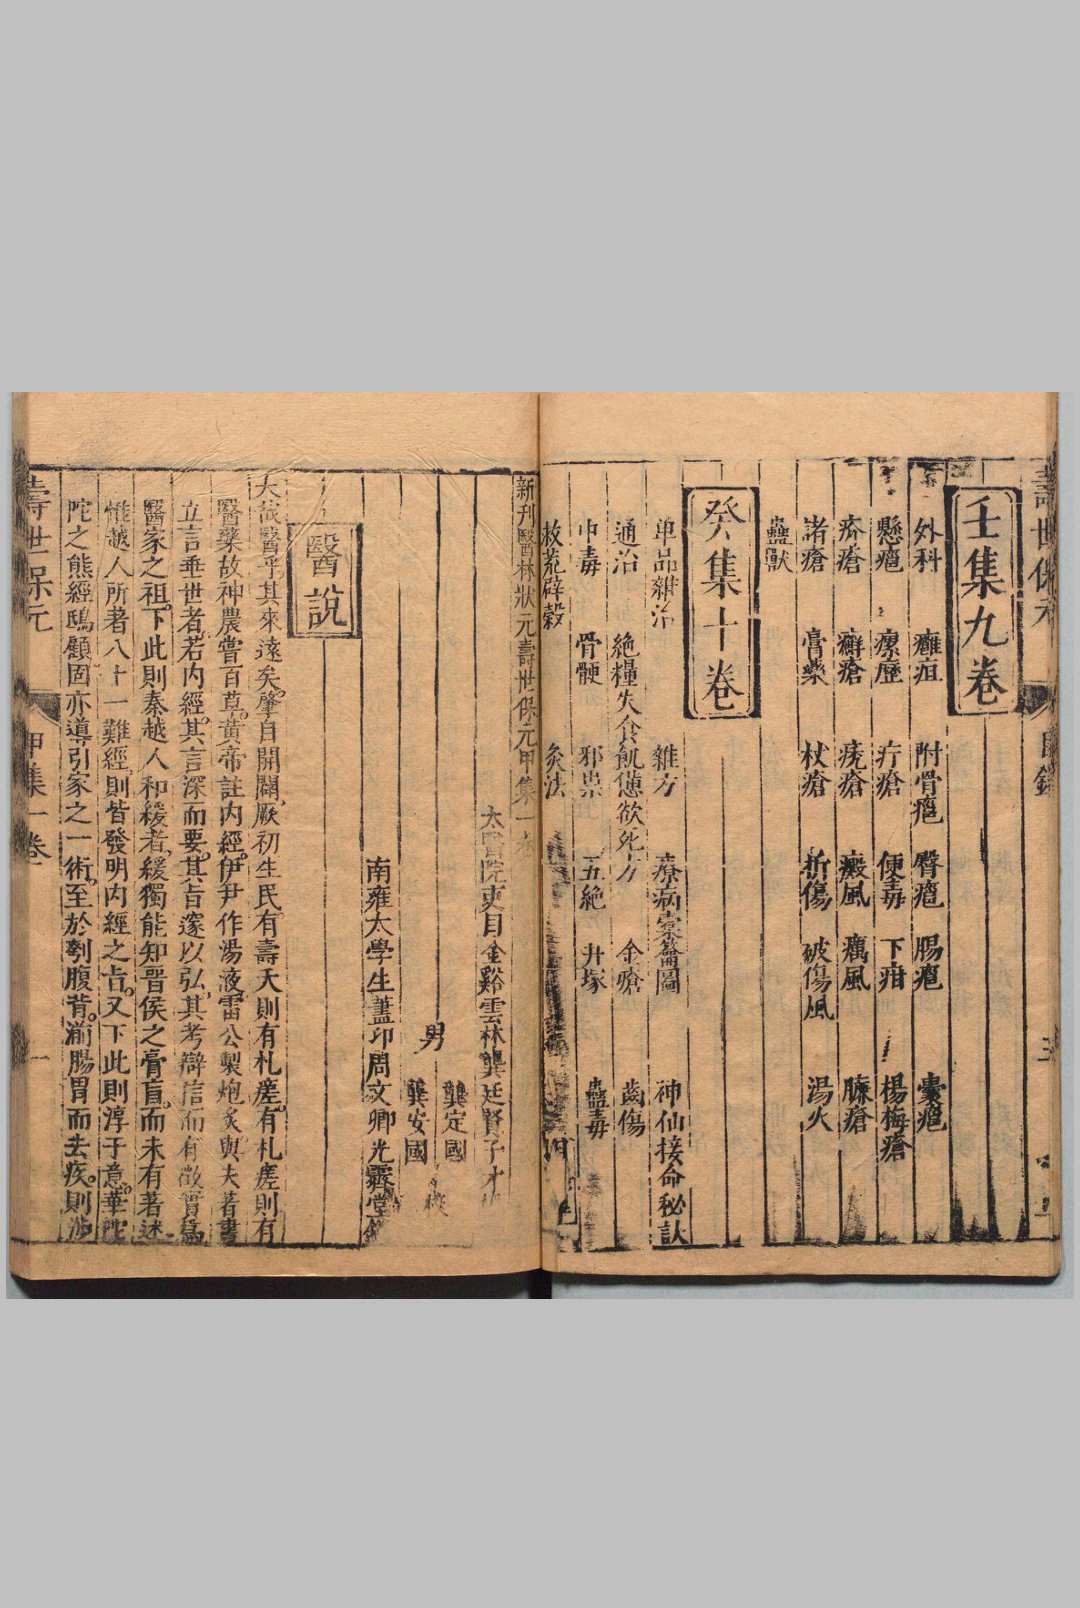 壽世保元
目錄
壬集九卷
外科 癰疽 附骨癰 臀癰 腸癰 囊癰
懸癰 瘰癧 疔瘡 便毒 下疳 楊梅瘡
疥瘡 癬瘡 㾾瘡 癜風 癘風 臁瘡
諸瘡 膏藥 杖瘡 折傷 破傷風 湯火
蟲獸
癸集十卷
單品雜治 雜方 療病槖籥圖 神仙接命秘訣
通治 絶糧失食飢憊欲死方 金瘡 齒傷
中毒 骨骾 邪祟 五絶 升塚 蠱毒
救荒辟穀 灸法
新刊醫林狀元壽世保元甲集一卷
太醫院吏目金谿雲林龔廷賢子才
男 龔定國
龔安國
南雍太學生藎印周文卿光霽堂
醫說
大哉醫乎其來遠矣肇自開闢厥初生民有壽夭則有札瘥有札瘥則有
醫藥故神農嘗百草黃帝註内經伊尹作湯液雷公製炮炙與夫著書
立言垂世者若内經其言深而要其旨邃以弘其考辯信而有徵實爲
醫家之祖下此則秦越人和緩者緩獨能知晋侯之膏肓而未有著述
惟越人所著八十一難經則皆發明内經之旨又下此則淳于意華陀
陀之熊經鴟顧固亦導引家之一術至於刳腹背湔腸胃而去疾則涉
壽世保元
甲集一卷
一